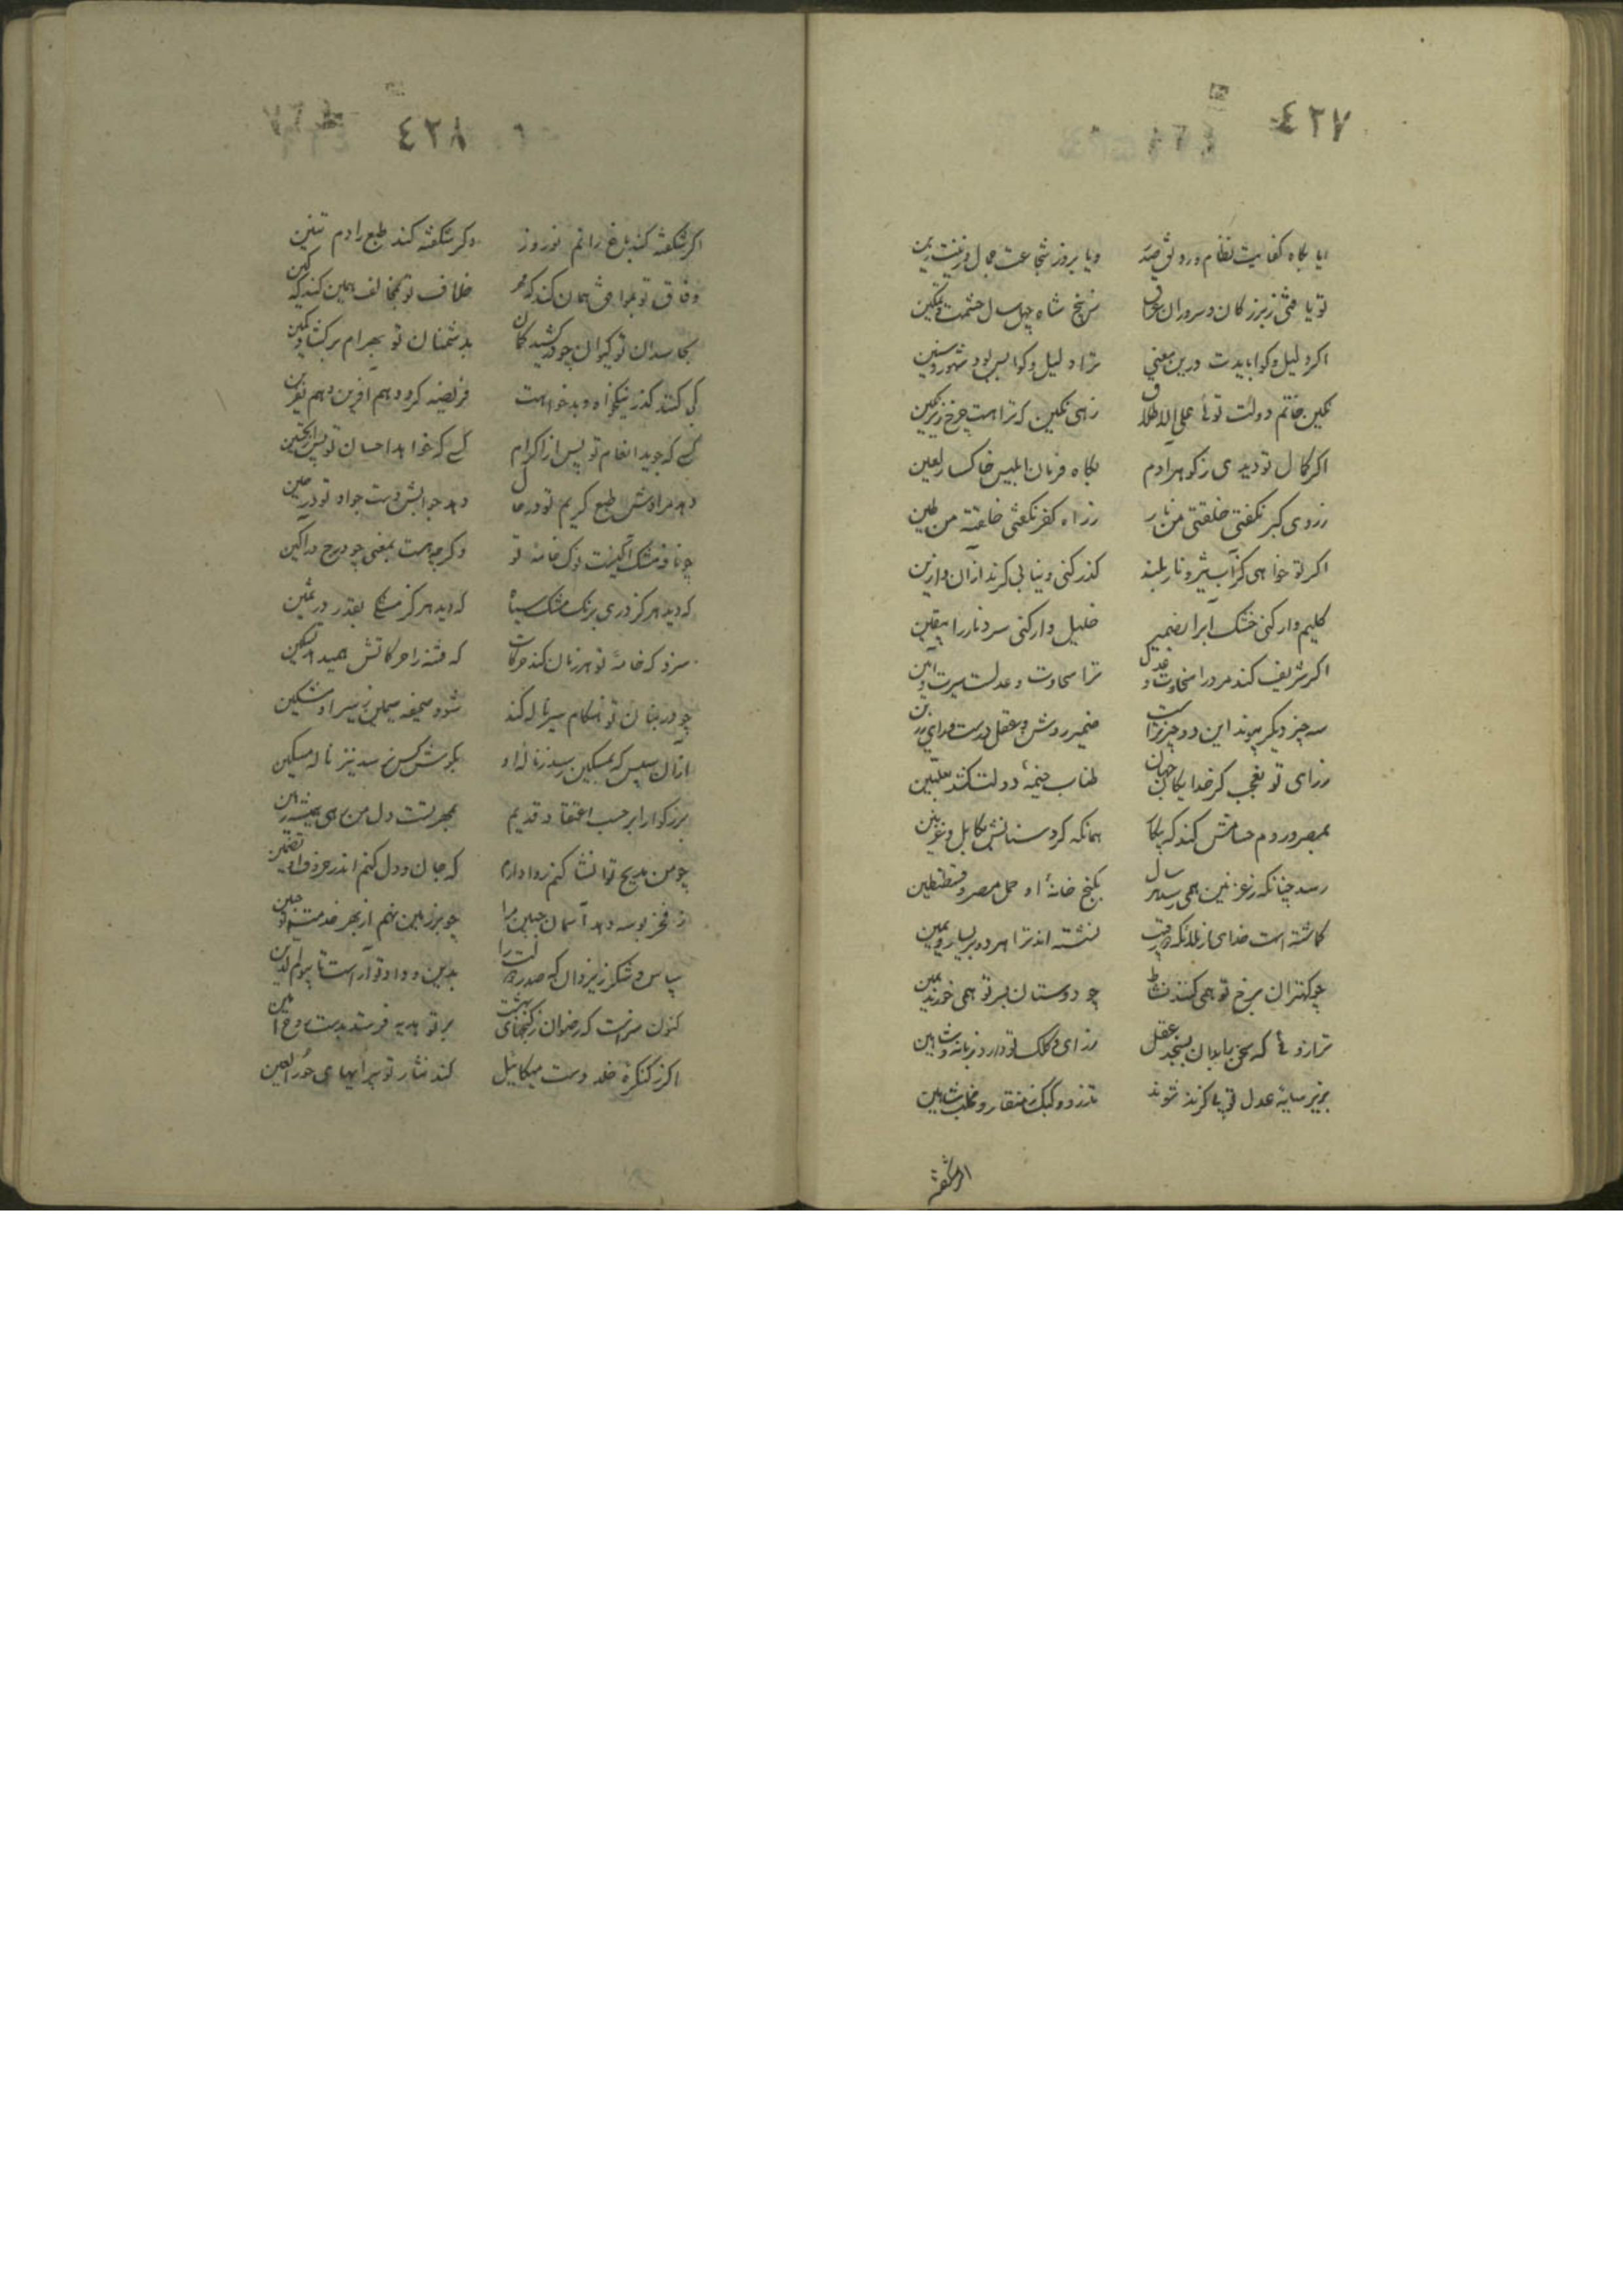 ٤٢٧
ایا بگاه کفایت نظام و رونق صدر ویا بروز شجاعت جمال و زینت زین
تو یافتی ز بزرگان و سروران عراق ز پنج شاه چهل سال حشمت و تمکین
اگر دلیل و گوا بایدت درین معنی ترا دلیل و گوا بس بود شهور و سنین
نگین خاتم دولت توئی علی الاطلاق زهی نگین که ترا هست چرخ زیر نگین
اگر کمال تو دیدی ز گوهر آدم بگاه فرمان ابلیس خاکسار لعین
ز روی کبر نگفتی خلقتنی من نار ز راه کفر نگفتی خلقته من طین
اگر تو خواهی کز آب ژرف و نار بلند گذر کنی و نیابی گزند ازان و ازین
کلیم وار کنی خشک آب را بضمیر خلیل وار کنی سرد نار را بیقین
اگر شریف کند مرد را سخاوت و عدل ترا سخاوت و عدلست سیرت و آیین
سه چیز دیگر پیوند این دو چیز تراست ضمیر روشن و عقل درست و رای رزین
ز رای تو نه عجب گر خدایگان جهان طناب خیمهٔ دولت کشد
بمصر و روم حسامش کند که پیکار همانکه کرد سنانش بکابل و غزنین
رسد چنانکه ز غزنین همی رسد هر سال بگنج خانهٔ او حمل مصر و قسطنطین
گماشته است خدای از ملائکه دو رقیب نشسته اند ترا هر دو بر یسار و یمین
چو کهتران برخ تو همی کنند نشاط چو دوستان بسر تو همی خورند یمین
ترازوئی که سخن را بدان بسنجد عقل ز رای و کلک تو دارد زبانه و شاهین
بزیر سایهٔ عدل تو بی گزند شوند تذرو و کبک ز منقار و مخلب شاهین
اگر شکفته
٤٢٨
اگر شکفته کند باغ را نم نوروز وگر شکفته کند طبع را دم تنین
وفاق تو بموافق همان کند که مهر خلاف تو بمخالف همین کند که کین
بحاسدان تو کیوان چو در کشید کمان بدشمنان تو بهرام بر گشاد کمین
کی کنند گذر نیکخواه و بدخواهت فریضه گردد هم آفرین و هم نفرین
کسی که جوید انعام تو پس از اکرام کسی که خواهد احسان تو پس از تحسین
دهد مرادش طبع کریم تو در حال دهد جوابش دست جواد تو در حین
چو نافه مشک آگینست نوک خامهٔ تو وگرچه هست بمعنی چو درج در آگین
که دید هرگز دری برنگ مشک سیاه که دید هرگز مشکی بقدر در ثمین
سزد که خامهٔ تو هر زمان کند حرکات که فتنه را حرکاتش همی دهد تسکین
چو در بنان تو هنگام سیر ناله کند شود صحیفه سیمین ز سیر او مشکین
ازان سپس که بمسکین رسد ز نالهٔ او بگوش کس نرسد نیز نالهٔ مسکین
بزرگوارا بر حسب اعتقاد قدیم بمهر تست دل من همی همیشه رهین
چو من مدیح تو انشا کنم روا دارم که جان و دل کنم اندر حروف او تضمین
ز فخر بوسه دهد آسمان جبین مرا چو بر زمین نهم از بهر خدمت تو جبین
سپاس و شکر ز یزدان که صدر دولت را بدین و داد تو آراست تا بیوم الدین
کنون سزاست که رضوان ز گنجهای بهشت بر تو هدیه فرستد بدست روح امین
اگر ز کنگرهٔ خلد دست میکائیل کند نثار تو پیرایهای حور العین